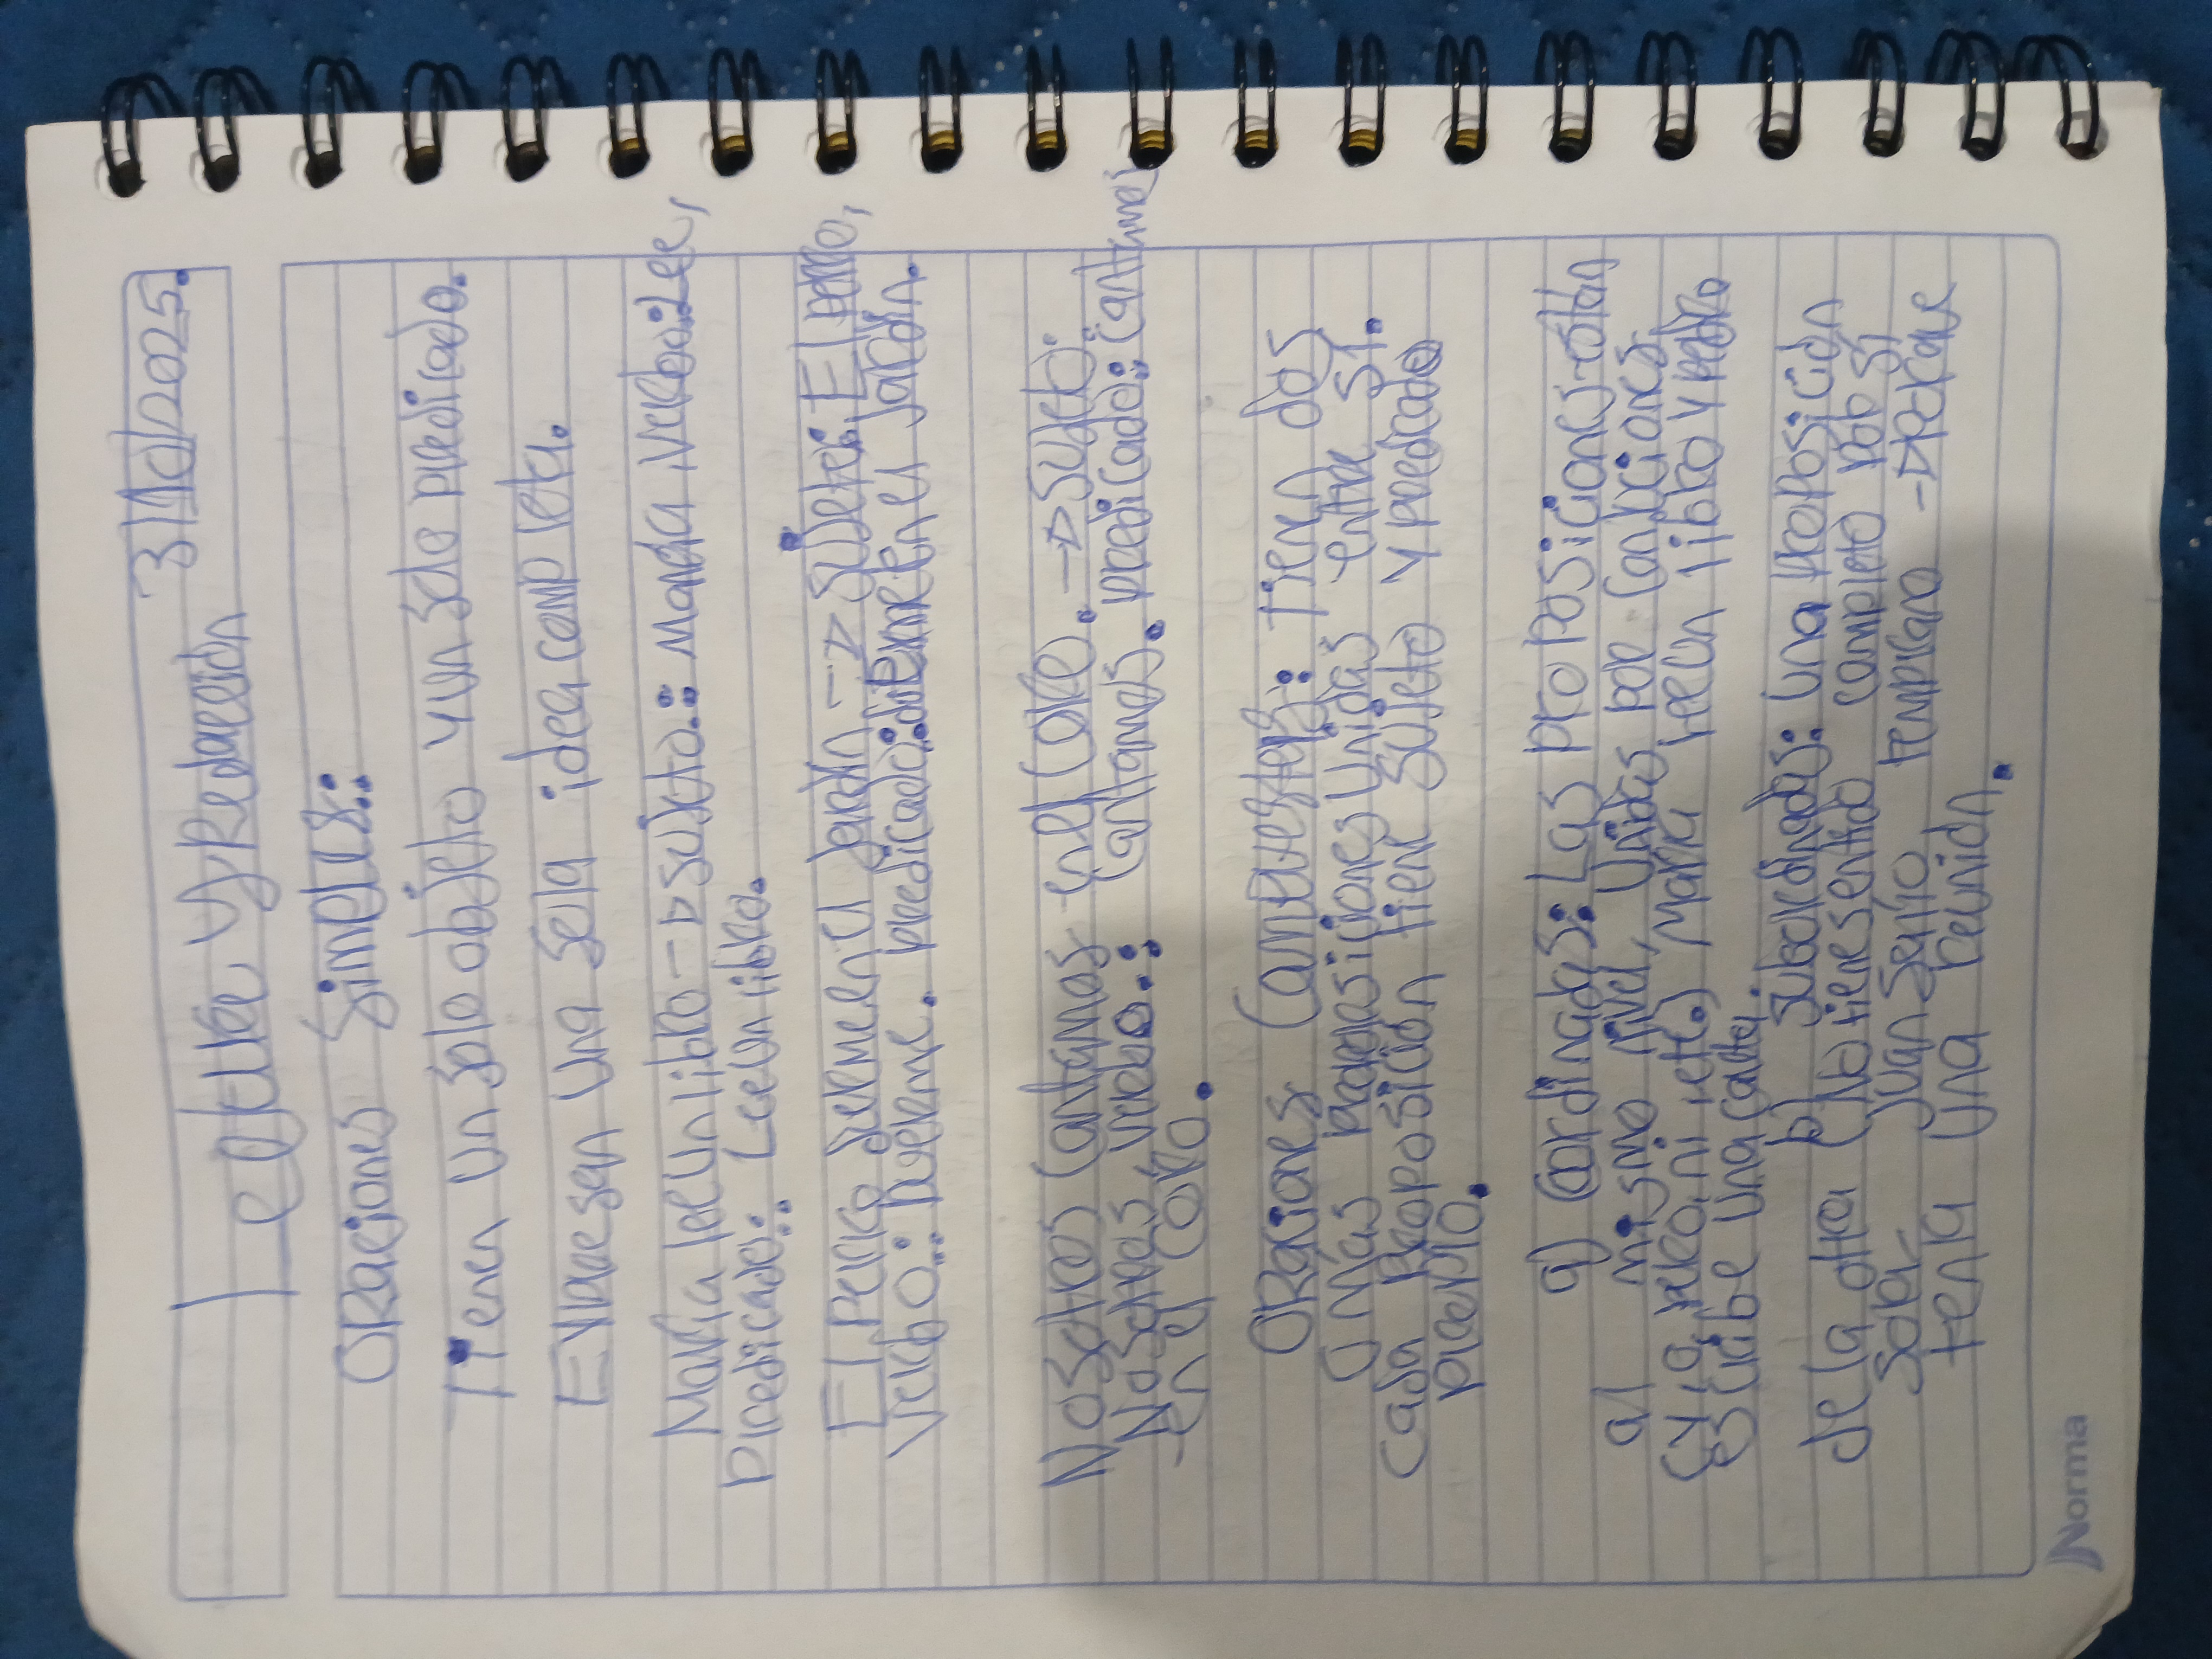 Lectura y Redacción 3/10/2025.
Oraciones Simples:
Tienen un solo objeto y un solo predicado.
Expresan una sola idea completa.
María lee un libro -> sujeto: María verbo: Lee,
predicado: Lee un libro.
El perro duerme en el jardín -> sujeto: El perro,
verbo: duerme. predicado: duerme en el jardín.
Nosotros cantamos en el coro. -> sujeto:
Nosotros, verbo: cantamos. predicado: cantamos
en el coro.
Oraciones Compuestas: tienen dos
o más proposiciones unidas entre sí.
cada proposición tiene sujeto y predicado
propio.
a) Cordinadas: Las proposiciones están
al mismo nivel, unidas por conjunciones
(y, o, pero, ni, etc.) María lee un libro y Pedro
escribe una carta.
b) subordinadas: una proposición
de la otra (No tiene sentido completo por sí
sola. Juan salío temprano -> porque
tenía una reunión.
Norma